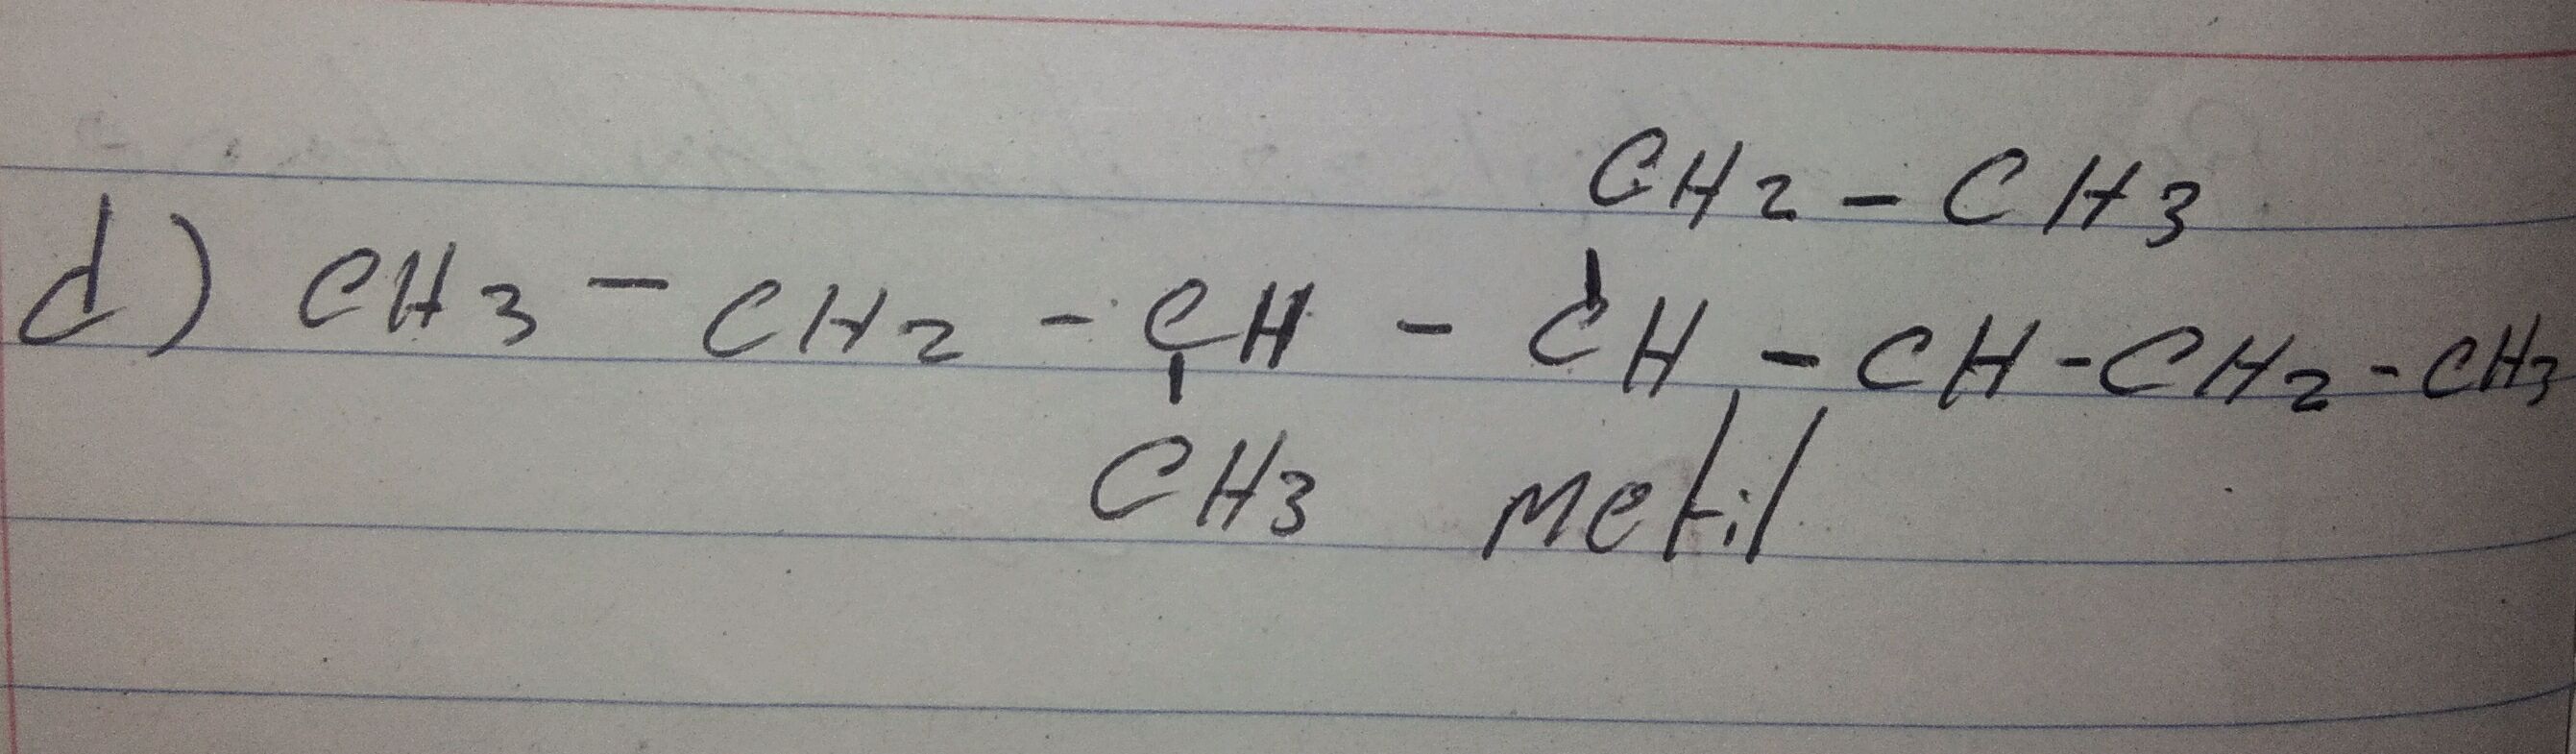 CH2 - CH3
d) CH3 - CH2 - CH - CH - CH - CH2 - CH3
CH3 Metil